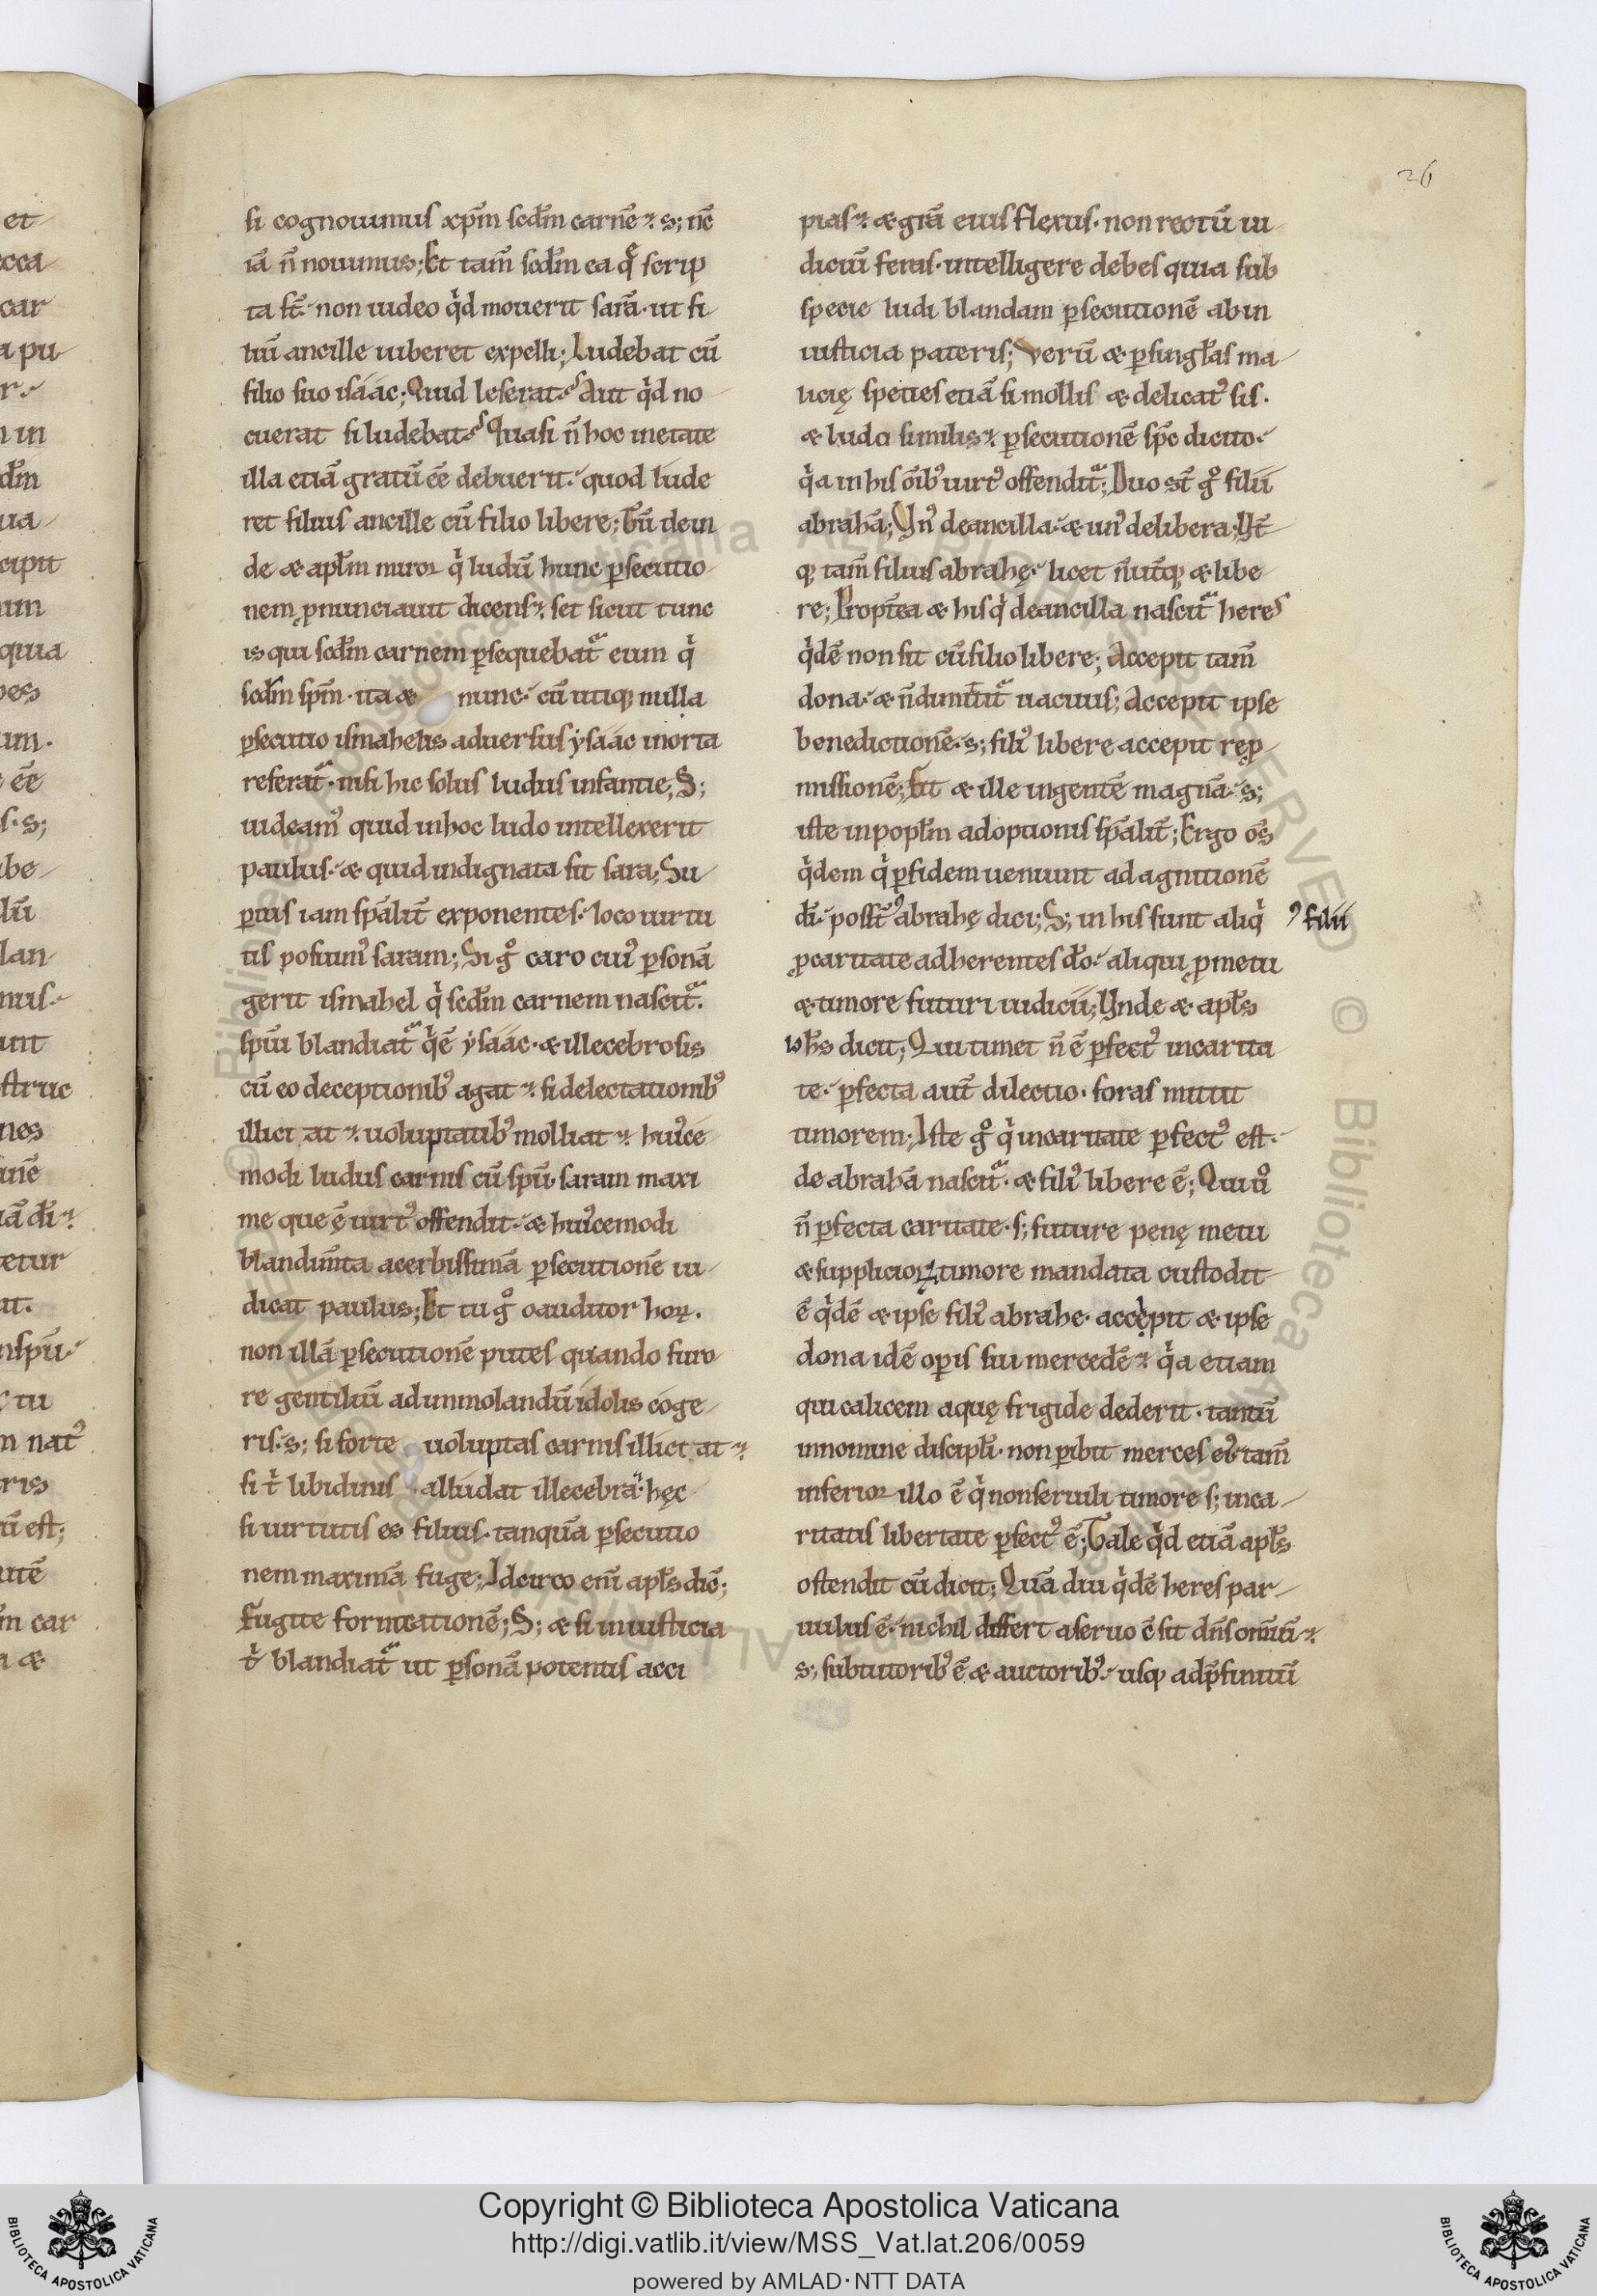 26
si cognouimus xp̄m scd̄m carnē. s; nc̄
iā n̄ nouimus; Et tam̄ scd̄m ea q̄ scrip
ta st̄. non uideo qd mouerit sarā. ut fi
liū ancille iuberet expelli; Ludebat cū
filio suo isáác; Quid leserat? Aut qd no
cuerat si ludebat? Quasi n̄ hoc in etate
illa etiā gratū eē debuerit. quod lude
ret filius ancille cū filio libere; Tū dein
de & apl̄m miror qi ludū hunc ꝑsecutio
nem ꝓnunciauit dicens. set sicut tunc
is qui scd̄m carnem ꝑsequebat᷑ eum qi
scd̄m sp̄m. ita & nunc. cū utiqꝫ nulla
ꝑsecutio ismahelis aduersus ysáác inorta
referat᷑. nisi hic solus ludus infantie; S;
uideam᷒ quid in hoc ludo intellexerit
paulus. & quid indignata sit sara; Su
ꝑius iam sp̄alit̄ exponentes. loco uirtu
tis posuim᷒ saram; Si gͦ caro cui᷒ ꝑsonā
gerit ismahel qi scd̄m carnem nascit᷑.
sp̄ui blandiat᷑ qi ē ysáác. & illecebrosis
cū eo deceptionib᷒ agat. si delectationib᷒
illiciat. uoluptatib᷒ molliat. hui᷒ce
modi ludus carnis cū sp̄u. saram maxi
me que ē uirt᷒ offendit. & hui᷒cemodi
blandim̄ta acerbissimā ꝑsecutionē iu
dicat paulus; Et tu gͦ o auditor hoꝝ.
non illā ꝑsecutionē putes quando furo
re gentiliū ad immolandū idolis coge
ris. s; si forte uoluptas carnis illiciat.
si t̄ libidinis alludat illecebra. hęc
si uirtutis es filius. tanquā ꝑsecutio
nem maximā fuge; Idcirco eni᷒ apl̄s dic̄;
Fugite fornicationē; S; & si iniusticia
t̄ blandiat᷑ ut ꝑsonā potentis acci
pias. & grā eius flexus. non rectū iu
diciū feras. intelligere debes quia sub
specie ludi blandam ꝑsecutionē ab in
iusticia pateris; Verū & ꝑ singl̄as ma
licię species etiā si mollis & delicat᷒ sis.
& ludo similis. ꝑsecutionē sp̄c dicito.
qia in his oīb᷒ uirt᷒ offendit᷑; Duo st̄ gͦ filii
abrahā; Vn᷒ de ancilla. & un᷒ de libera; Vt̄
qꝫ tam̄ filius abrahę. licet n̄ ut̄qꝫ & libe
re; Propt̄ea & his qi de ancilla nascit᷑ heres
qidē non sit cū filio libere; Accepit tam̄
dona. & n̄ dimittit᷑ uacuus; Accepit ipse
benedictionē. s; fili᷒ libere accepit reꝓ
missionē; Fit & ille in gentē magnā. s;
iste in popl̄m adoptionis sp̄alit̄; Ergo om̄s
qidem qi ꝑ fidem ueniunt ad agnitionē
dī. posst̄ abrahę dici; S; in his sunt aliqi
filii
ꝓ caritate adherentes dō. aliqui ꝓ metu
& timore futuri iudicii; Vnde & apl̄s
ioh̄s dicit; Qui timet n̄ ē ꝑfect᷒ in carita
te. ꝑfecta aut̄ dilectio. foras mittit
timorem; Iste gͦ qi in caritate ꝑfect᷒ est.
de abrahā nascit᷑. & fili᷒ libere ē; Qui uͦ
n̄ ꝑfecta caritate. s; future penę metu
& supplicioꝝ timore mandata custodit
ē qidē & ipse fili᷒ abrahe. accepit & ipse
dona idē oꝑis sui mercedē. qia etiam
qui calicem aquę frigide dederit. tantū
in nomine discipl̄i. non ꝑibit merces ei᷒. tam̄
inferior illo ē qi non seruili timore s; in ca
ritatis libertate ꝑfect᷒ ē; Tale qid etiā apl̄s
ostendit cū dicit; Quā diu qidē heres par
uulus ē. nichil differt a seruo cū sit dn̄s omniū.
s; sub tutorib᷒ ē & auctorib᷒. usqꝫ ad p̄finitū
Copyright © Biblioteca Apostolica Vaticana
http://digi.vatlib.it/view/MSS_Vat.lat.206/0059
powered by AMLAD·NTT DATA
BIBLIOTECA APOSTOLICA VATICANA
BIBLIOTECA APOSTOLICA VATICANA